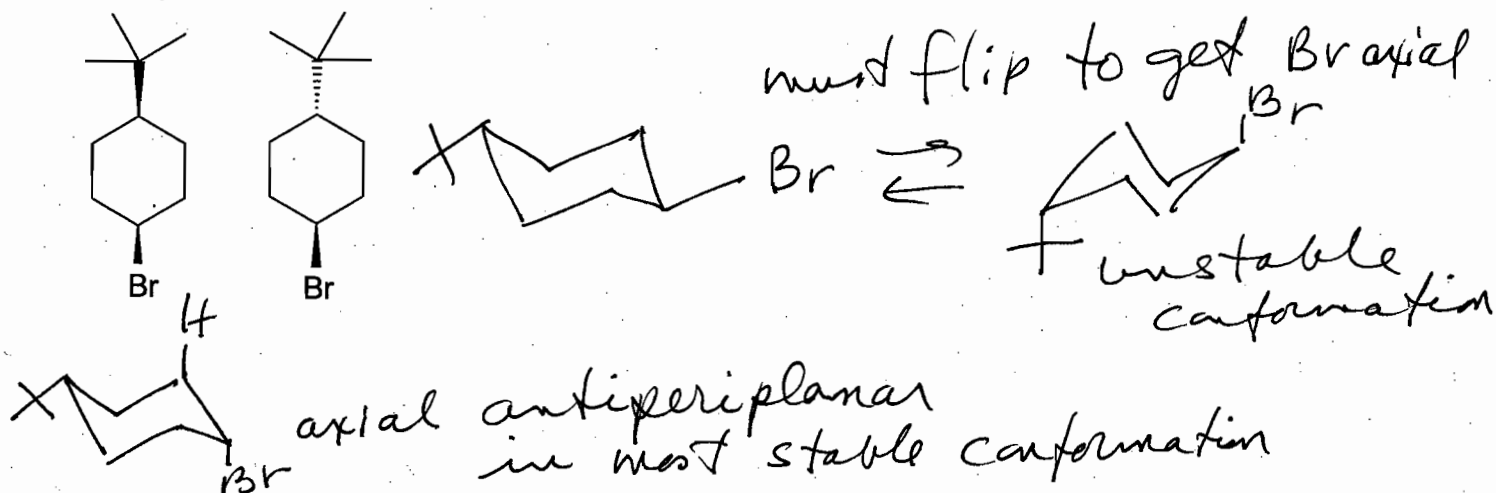 must flip to get Br axial
Br
Br
Br
Br
unstable
conformation
H
axial antiperiplanar
in most stable conformation
Br